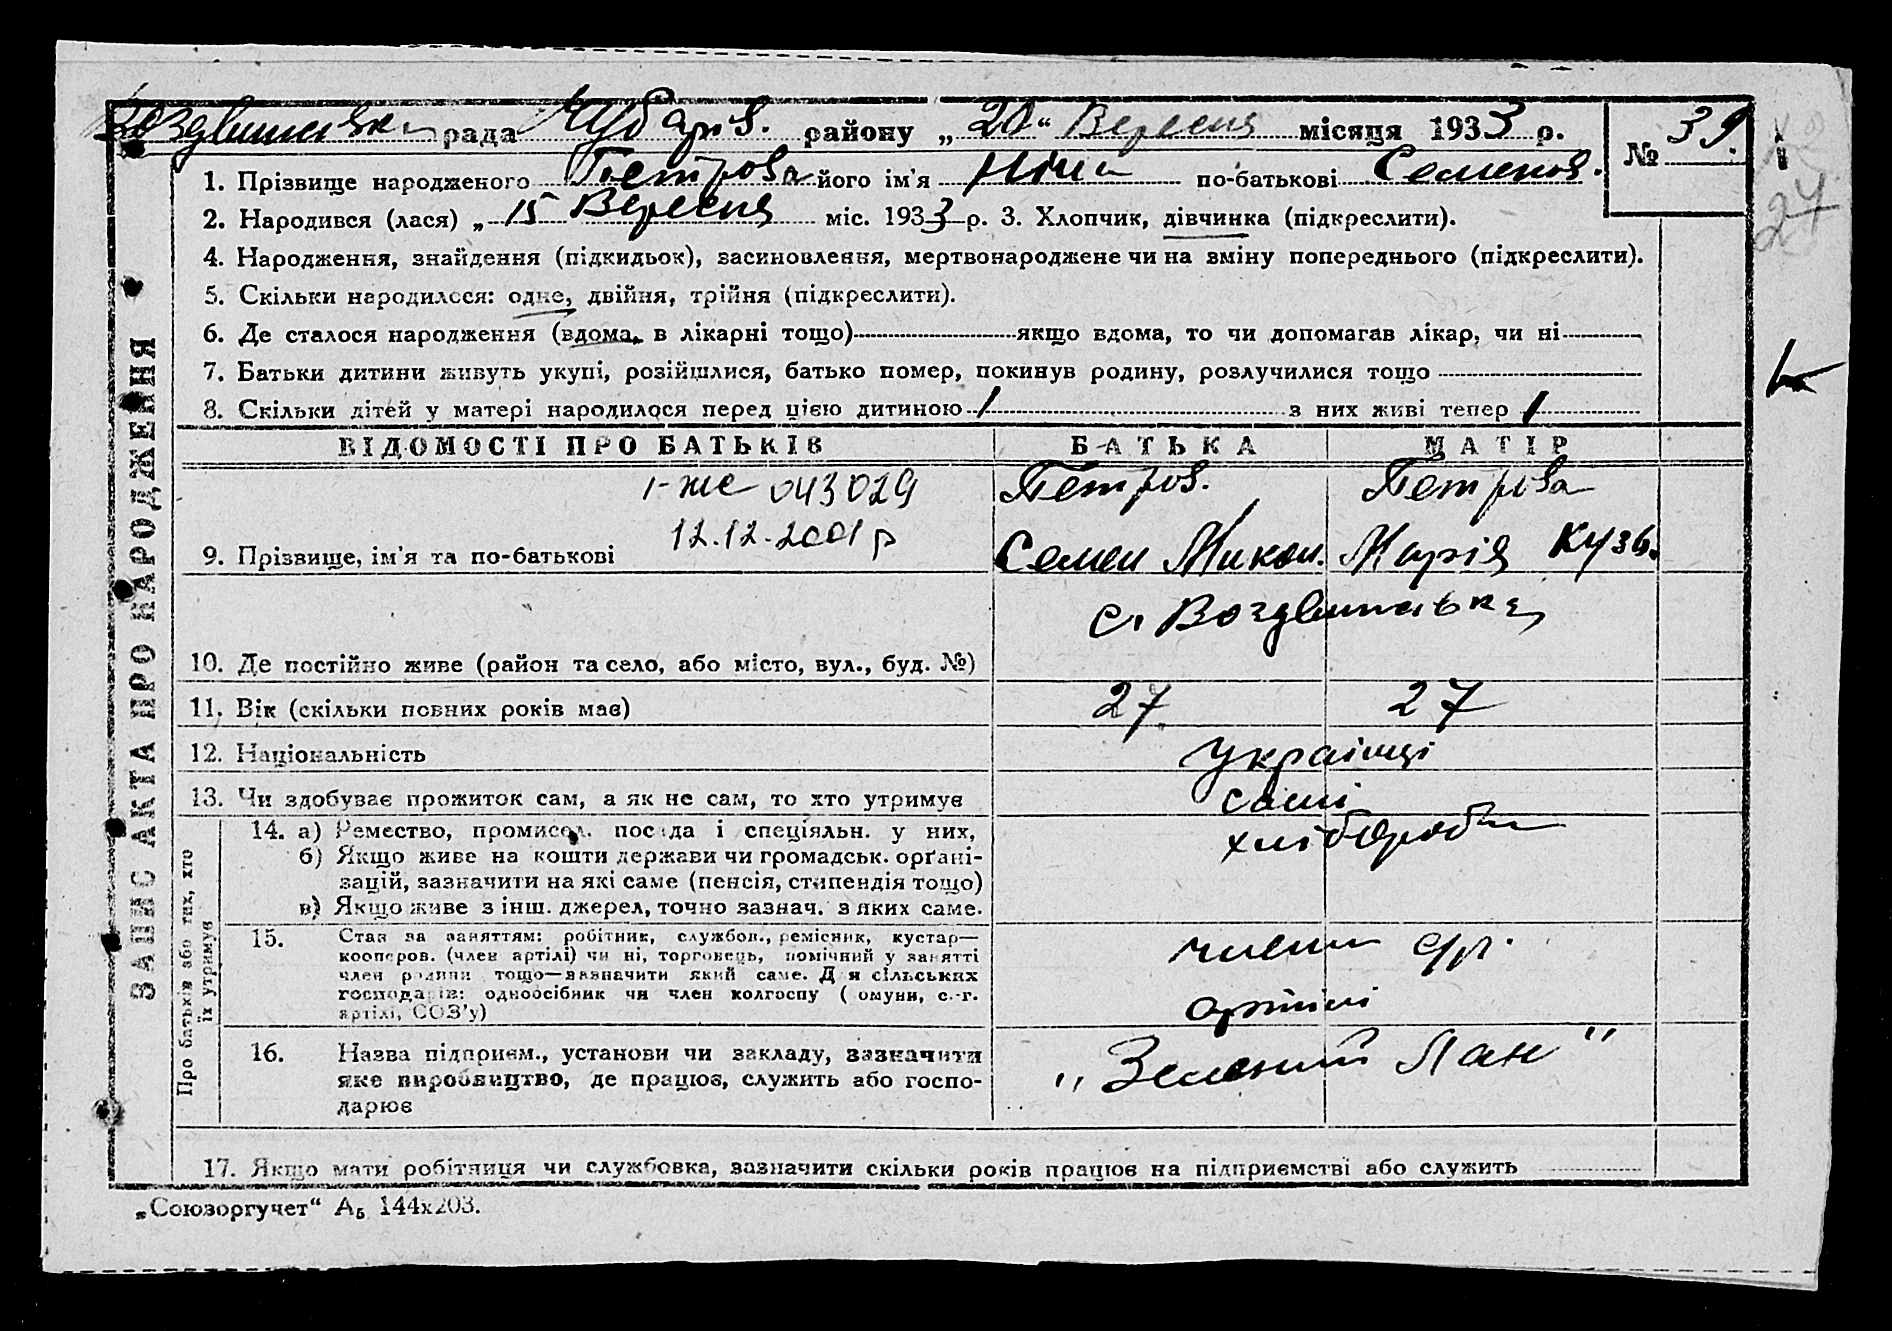 Воздвиженська рада Чубарів. району „20“ Вересня місяця 1933 р.
№ 39.
27
1. Прізвище народженого Петрова його ім'я Ніна по-батькові Семенов.
2. Народився (лася) „15 Вересня міс. 1933 р. 3. Хлопчик, дівчинка (підкреслити).
4. Народження, знайдення (підкидьок), засиновлення, мертвонароджене чи на зміну попереднього (підкреслити).
5. Скільки народилося: одне, двійня, трійня (підкреслити).
6. Де сталося народження (вдома, в лікарні тощо) якщо вдома, то чи допомагав лікар, чи ні
7. Батьки дитини живуть укупі, розійшлися, батько помер, покинув родину, розлучилися тощо
8. Скільки дітей у матері народилося перед цією дитиною 1 з них живі тепер 1
ЗАПИС АКТА ПРО НАРОДЖЕННЯ
ВІДОМОСТІ ПРО БАТЬКІВ БАТЬКА МАТІР
І-ЖС 043029 Петров. Петрова
12.12.2001 р
9. Прізвище, ім'я та по-батькові Семен Микол. Марія Кузь.
с. Воздвиженська
10. Де постійно живе (район та село, або місто, вул., буд. №)
11. Вік (скільки повних років має) 27 27
12. Національність Українці
13. Чи здобуває прожиток сам, а як не сам, то хто утримує самі
Про батьків або тих, хто
їх утримує
14. а) Ремество, промисел. посада і спеціяльн. у них, хлібороби
б) Якщо живе на кошти держави чи громадськ. орґані-
зацій, зазначити на які саме (пенсія, стипендія тощо)
в) Якщо живе з інш. джерел, точно зазнач. з яких саме.
15. Стан за заняттям: робітник, службов., ремісник, кустар—
кооперов. (член артілі) чи ні, торговець, помічний у занятті
член родини тощо—зазначити який саме. Для сільських
господарів: одноосібник чи член колгоспу (комуни, с.-г.
артілі, СОЗ'у)
члени с/г.
артілі
16. Назва підприєм., установи чи закладу, зазначити
яке виробництво, де працює, служить або госпо-
дарює
„Зелений Лан"
17. Якщо мати робітниця чи службовка, зазначити скільки років працює на підприємстві або служить
„Союзоргучет“ А₅ 144х203.